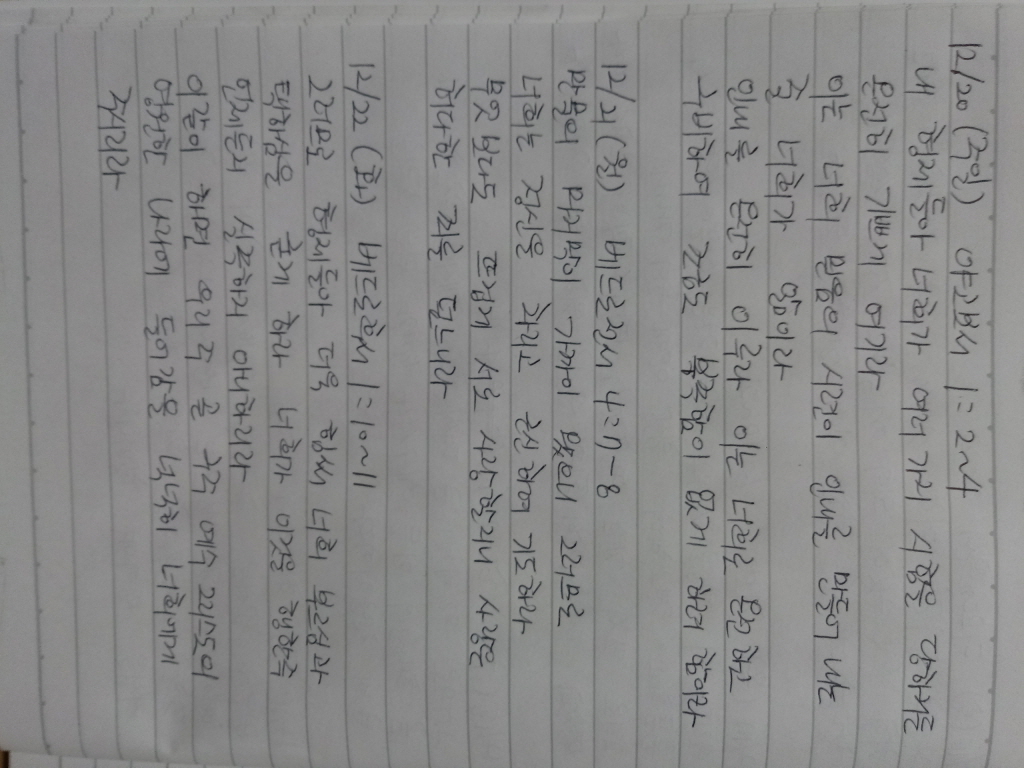 12/20 (주일) 야고보서 1:2~4
내 형제들아 너희가 여러 가지 시험을 당하거든
온전히 기쁘게 여기라
이는 너희 믿음의 시련이 인내를 만들어 내는
줄 너희가 앎이라
인내를 온전히 이루라 이는 너희로 온전하고
구비하여 조금도 부족함이 없게 하려 함이라
12/21 (월) 베드로전서 4:7-8
만물의 마지막이 가까이 왔으니 그러므로
너희는 정신을 차리고 근신하여 기도하라
무엇보다도 뜨겁게 서로 사랑할지니 사랑은
허다한 죄를 덮느니라
12/22 (화) 베드로후서 1:10~11
그러므로 형제들아 더욱 힘써 너희 부르심과
택하심을 굳게 하라 너희가 이것을 행한즉
언제든지 실족하지 아니하리라
이같이 하면 우리 주 곧 구주 예수 그리스도의
영원한 나라에 들어감을 넉넉히 너희에게
주시리라